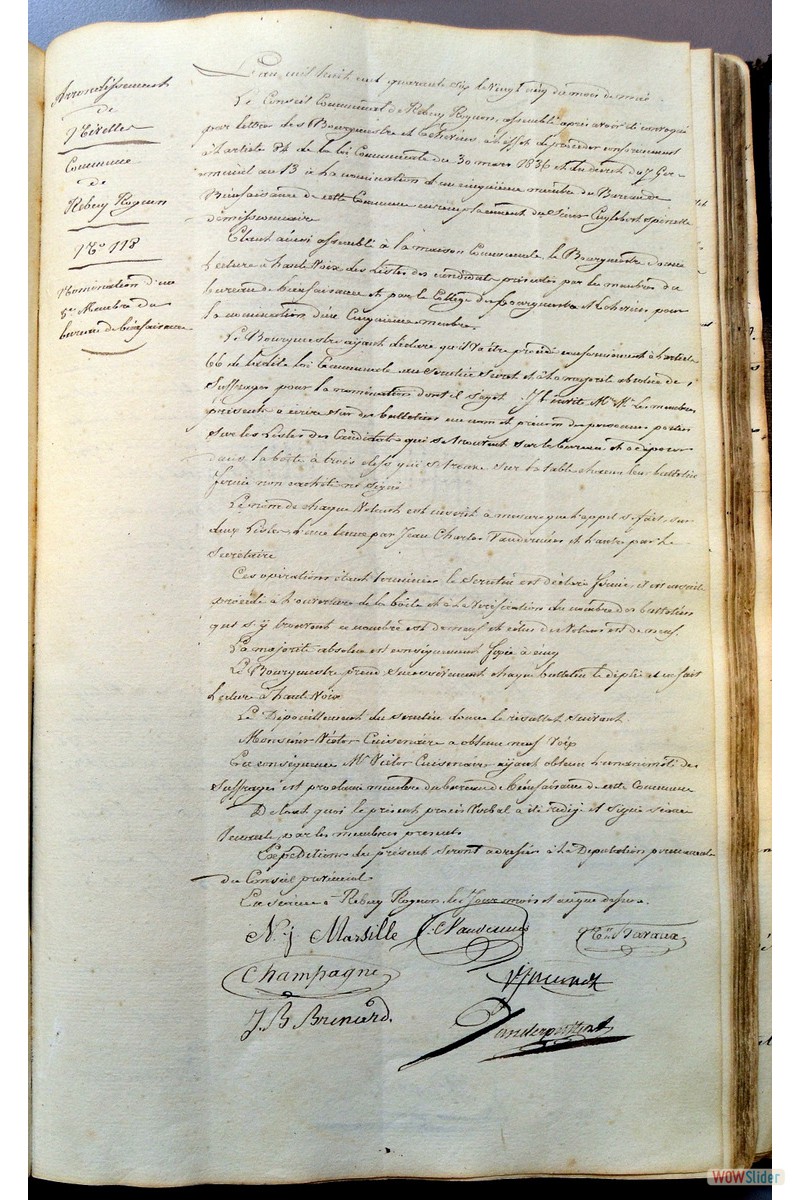 Arrondissement
de
Nivelles
Commune
de
Rebecq Rognon
No 118
Nomination d'un
5me Membre du
bureau de bienfaisance
L'an mil huit cent quarante six le vingt cinq du mois de mai
Le Conseil Communal de Rebecq Rognon, assemblé après avoir été convoqué
par lettre des Bourgmestre et Echevins, à l'effet de procéder conformément
à l'article 84 de la loi Communale du 30 mars 1836 et du décret du 7 Ger-
minal an 13 à la nomination d'un cinquième membre du Bureau de
Bienfaisance de cette Commune en remplacement du Sieur Englebert Spinette
démissionnaire
Etant ainsi assemblé à la maison Communale, le Bourgmestre donne
Lecture à haute Voix des Listes des candidats présentés par les membres du
bureau de bienfaisance et par le Collège des Bourgmestre et Echevins pour
la nomination d'un Cinquième membre.
Le Bourgmestre ayant déclaré qu'il va être procédé conformément à l'article
66 de la dite loi Communale au Scrutin Secret et à la majorité absolue des
Suffrages pour la nomination dont il s'agit. Il invite Mr Mrs Les membres
présents à écrire sur des bulletins un nom et prénom des personnes portées
sur les Listes des Candidats qui se trouvent sur le bureau et à déposer
dans la boîte à trois clefs qui se trouve sur la table chacun leur bulletin
fermé non cacheté ni signé
Le nom de chaque Votant est inscrit à mesure que l'appel se fait, sur
deux Listes, l'une tenue par Jean Charles Vandernier et l'autre par le
Secrétaire
Ces opérations étant terminées le Scrutin est déclaré fermé, il est ensuite
procédé à l'ouverture de la boîte et à la Vérification du nombre des bulletins
qui s'y trouvent ce nombre est de neuf et celui des Votans est de neuf.
La majorité absolue est conséquement fixée à cinq
Le Bourgmestre prend successivement chaque bulletin le déplie et en fait
Lecture à haute Voix
Le Dépouillement du scrutin donne le résultat suivant.
Monsieur Victor Cuisenaire a obtenu neuf Voix
En conséquence Mr Victor Cuisenaire, ayant obtenu l'unanimité des
Suffrages est proclamé membre du bureau de bienfaisance de cette Commune
De tout quoi le présent procès Verbal a été rédigé et signé séance
tenante par les membres présents
Expéditions du présent seront adressées à la Députation permanente
du Conseil provincial.
En séance à Rebecq Rognon, les Jour, mois et an que dessus.
N. j Massille
Champagne
J. B Brenard.